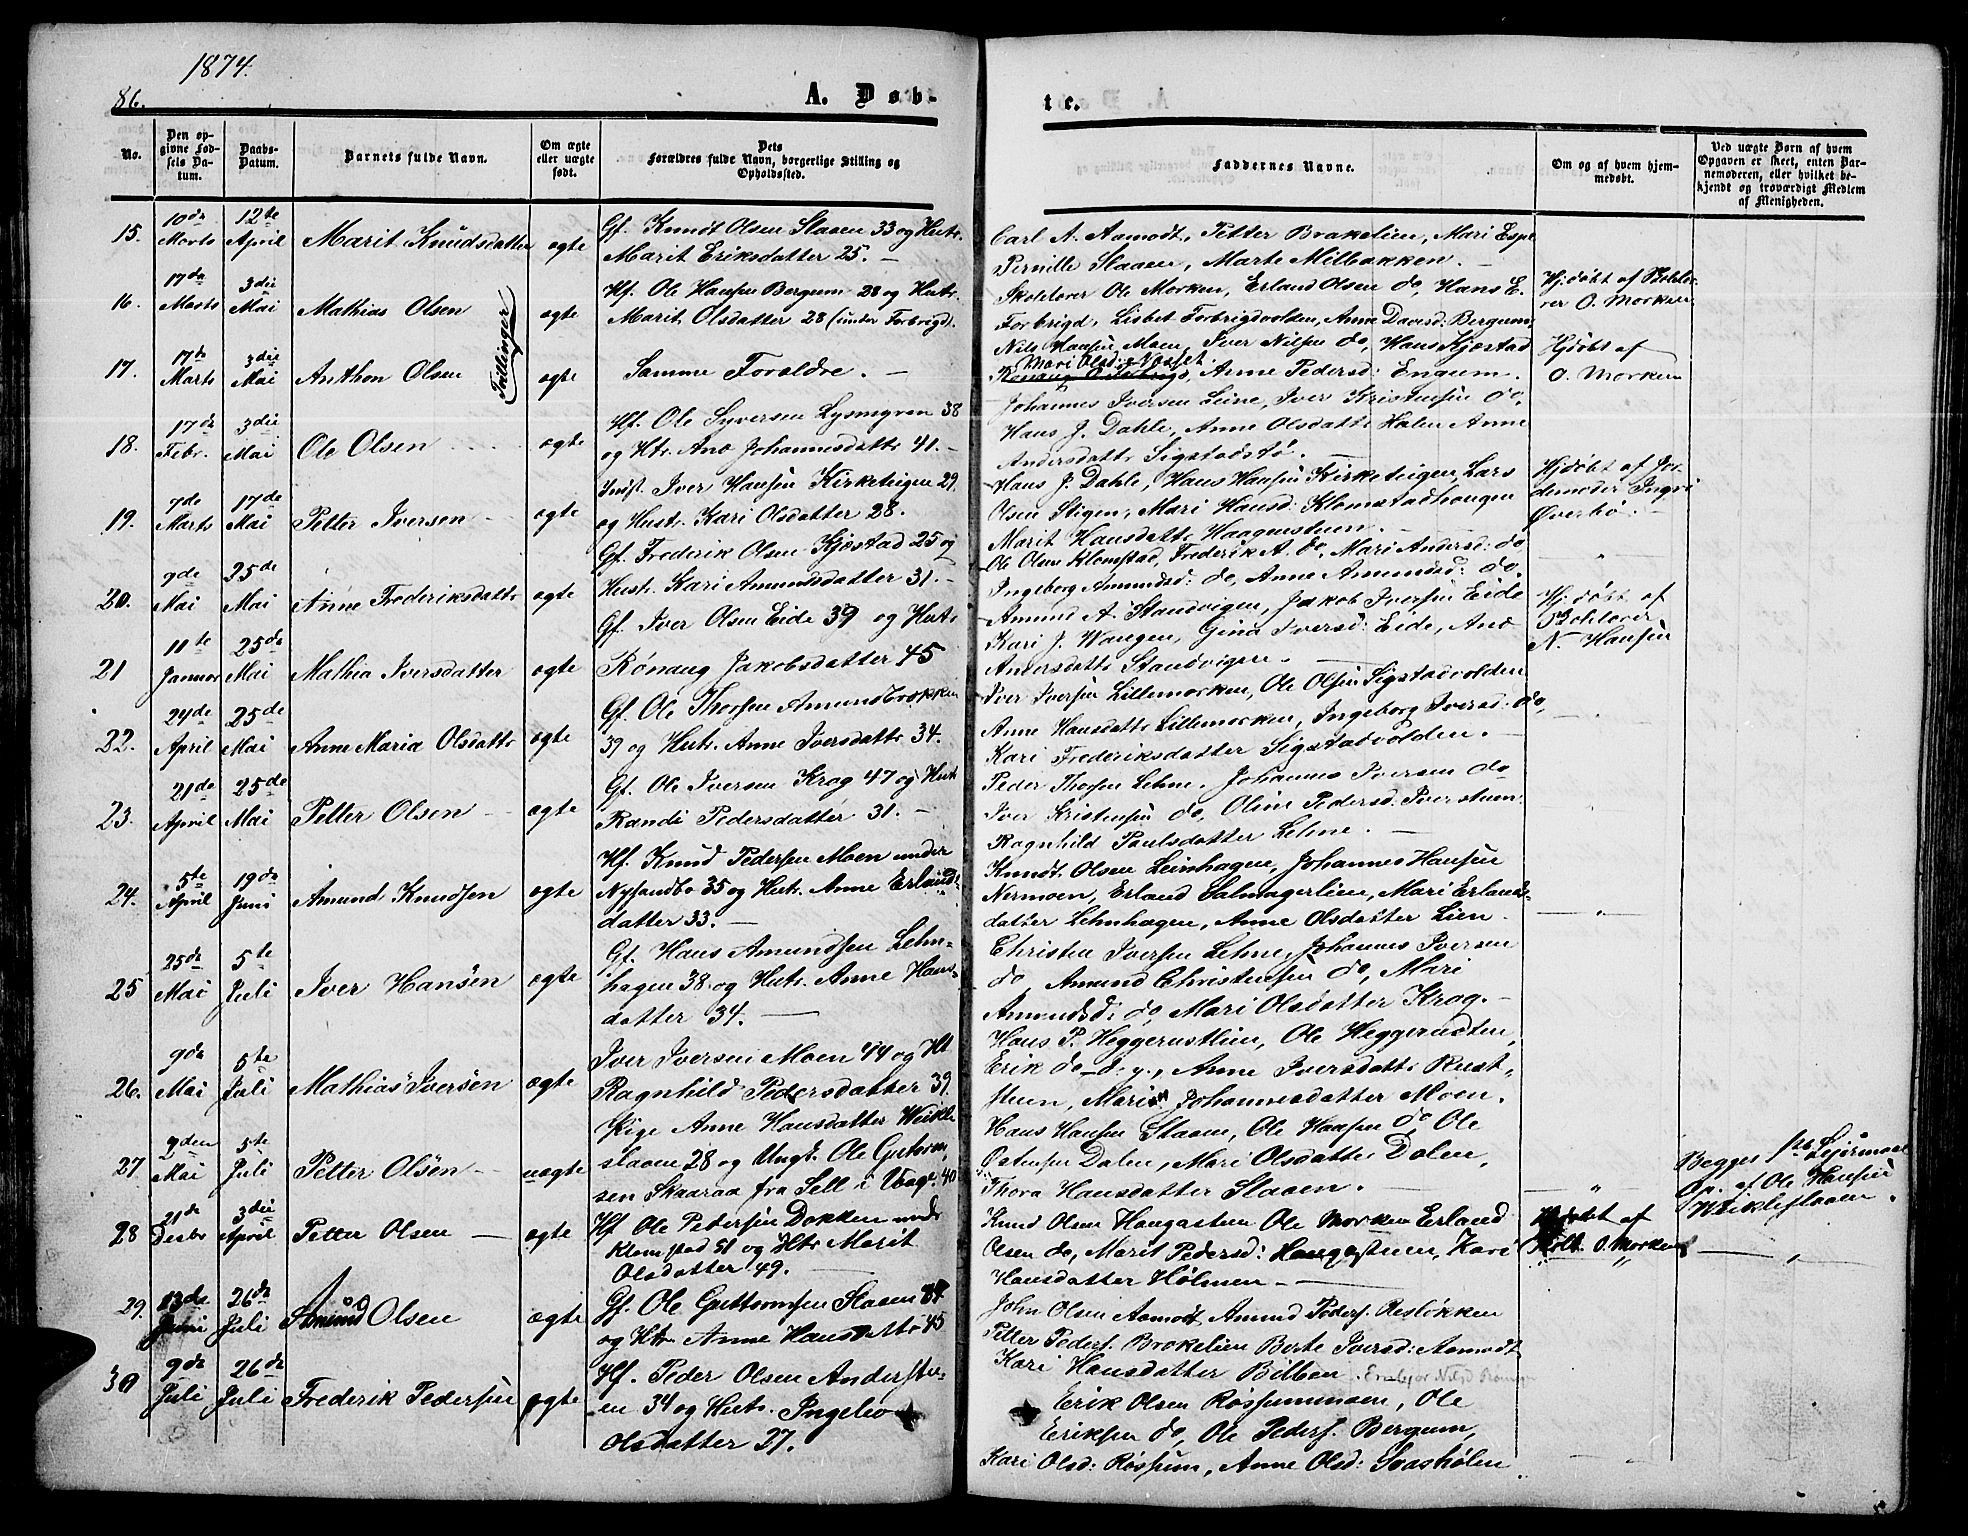 1874.
86.
A. Døb-
te.
No.
Den op-
givne Fød-
sels Da-
tum.
Daabs-
Datum.
Barnets fulde Navn.
Om ægte
eller uægte
født.
Dets
Forældres fulde Navn, borgerlige Stilling og
Opholdssted.
Faddernes Navne.
Om og af hvem hjem-
medøbt.
Ved uægte Børn af hvem
Opgaven er skeet, enten Bar-
nemoderen, eller hvilket be-
kjendt og troværdigt Medlem
af Menigheden.
15.
10de
Marts
12te
April
Marit Knudsdatter
ægte
Gf. Knudt Olsen Slaaen 33 og Hustr.
Marit Eriksdatter 25. —
Carl A. Aamodt, Petter Brakelien, Mari Espe
Pernille Slaaen, Marte Milbakken. —
16.
17de
Marts
3die
Mai
Mathias Olsen
Tvillinger
ægte
Hf. Ole Hansen Bergum 28 og Hustr.
Marit Olsdatter 28 (under Forbrigd).
Skolelærer Ole Morken, Erland Olsen do, Hans E.
Forbrigd, Lisbet Forbrigdvolden, Anne Davidsd: Bergum,
Hjdøbt af Skolelæ-
rer O. Morken
17.
17de
Marts
3die
Mai
Anthon Olsen
ægte
Samme Forældre. —
Nils Hansen Moen, Iver Nilsen do, Hans Kjæstad
Mari Olsd: Næstet.
Anne Pedersd: Engum.
Hjdøbt af
O. Morken
18.
17de
Febr.
3die
Mai
Ole Olsen
ægte
Hf. Ole Syversen Lysmgren 38
og Htr. Ane Johannesdattr 41. —
Johannes Iversen Leine, Iver Kristensen do,
Hans J. Dahle, Anne Olsdattr Holen Anne
Andersdattr Sigstadstø. —
19.
7de
Marts
17de
Mai
Petter Iversen —
ægte
Indst. Iver Hansen Kirketeigen 29.
og Hustr. Kari Olsdatter 28.
Hans J. Dahle, Hans Hansen Kirketeigen, Lars
Olsen Stigen, Mari Hansd: Klomstadhaugen
Marit Hansdattr Haagensteen. —
Hjdøbt af Jor-
demoder Ingri
Øverbø. —
20.
9de
Mai
25de
Mai
Anne Frederiksdattr
ægte
Gf. Frederik Olsen Kjæstad 25 og
Hustr. Kari Amundsdatter 31. —
Ole Olsen Klomstad, Frederik A. do, Mari Andersd: do
Ingeborg Amundsd: do, Anne Amundsd: do.
"
21
11te
Januar
25de
Mai
Mathea Iversdatter
ægte
Gf. Iver Olsen Eide 39 og Hustr
Rønaug Jakobsdatter 45
Amund A. Standvigen, Jakob Iversen Eide
Kari J. Wangen, Gina Iversd: Eide, Ane
Andersdattr Standvigen. —
Hjdøbt af
Skolelærer
N. Hansen
22.
24de
April
25de
Mai
Anne Maria Olsdattr
ægte
Gf. Ole Thorsen Amundbrokken
39 og Hustr. Anne Iversdattr 34.
Iver Iversen Lillemorken, Ole Olsen Sigstadvolden
Anne Hansdattr Lillemorken, Ingeborg Iversd: do,
Kari Frederiksdatter Sigstadvolden. —
23.
21de
April
25de
Mai
Petter Olsen —
ægte
Gf. Ole Iversen Krog 47 og Hustr
Randi Pedersdatter 31. —
Peder Thorsen Lehne, Johannes Iversen do
Iver Kristensen do, Oline Pedersd: Iversteen
Ragnhild Paulsdatter Lehne. —
24.
5te
April
19de
Juni
Amund Knudsen
ægte
Hf. Knud Pedersen Moen under
Nysandbo 35 og Hustr. Anne Erlands-
datter 33. —
Knudt Olsen Leinhagen, Johannes Hansen
Nermoen, Erland Salmagerlien, Mari Erlands-
datter Lehnhagen, Anne Olsdatter Lien.
— " —
25
25de
Mai
5te
Juli
Iver Hansen
ægte
Gf. Hans Amundsen Lehn-
hagen 38 og Hustr. Anne Hans-
datter 34. —
Christen Iversen Lehne, Johannes Iversen
do, Amund Christensen do, Mari
Amundsd: do, Mari Olsdatter Krog. —
26.
9de
Mai
5te
Juli
Mathias Iversen
ægte
Iver Iversen Moen 44 og Ht
Ragnhild Pedersdatter 39.
Hans P. Heggerusteen, Ole Heggerusten,
Erik do d. y., Anne Iversdattr Rust-
steen, Mari Johannesdatter Moen.
27
2den
Mai
5te
Juli
Petter Olsen —
uægte
Pige Anne Hansdatter Weikle-
slaaen 28 og Ungk. Ole Guttorm-
sen Skaaraa fra Sell i Vaage. 40
Hans Hansen Slaaen, Ole Hansen do Ole
Østensen Dalen, Mari Olsdattr Dalen,
Thora Hansdatter Slaaen. —
— " —
Begges 1ste Leiermaal
Op. af Ole Hansen
Weiklesslaaen.
28
21de
Decbr
3die
April
Petter Olsen —
ægte
Hf. Ole Pedersen Dokken under
Klomstad 51 og Htr Marit
Olsdatter 49. —
Knud Olsen Haugasteen Ole Morken Erland
Olsen do, Marit Pedersd: Haugasteen, Kari
Hansdatter Holmen. —
Hjdøbt af
Skoll. O. Morken
— " —
29.
13de
Juni
26de
Juli
Amund Olsen
ægte
Gf. Ole Guttormsen Slaaen
og Htr. Anne Hansdattr 45
John Olsen Aamodt, Amund Peders. Resløkken
Petter Peders. Brokelien Berte Iversd: Aamodt
Kari Hansdatter Bilben.
30
9de
Juli
26de
Juli
Frederik Pedersen
ægte
Hf. Peder Olsen Anderste-
en 34 og Hustr. Ingebor
Olsdatter 27.
Erik Olsen Røssummoen, Ole
Eriksen do, Ole Peders. Bergum,
Kari Olsd: Røssum, Anne Olsd: Svashølen